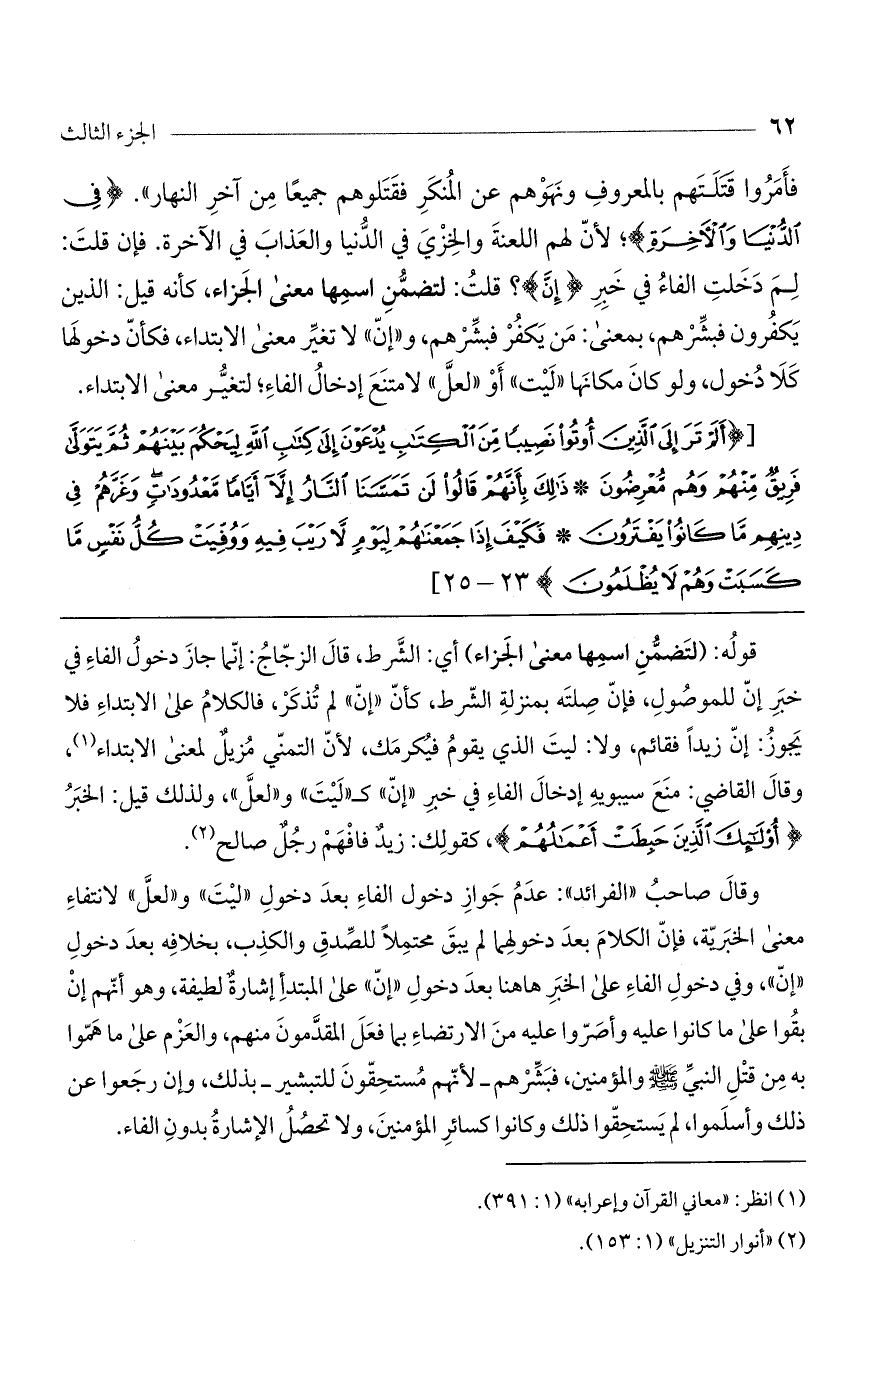 ٦٢ الجزء الثالث
فأَمَرُوا قَتَلَـتَهم بالمعروفِ ونهَوْهم عن المُنكَرِ فقَتَلوهم جميعًا مِن آخرِ النهار». ﴿فِي
ٱلدُّنْيَا وَٱلْآخِرَةِ﴾؛ لأنّ لهم اللعنةَ والخِزْيَ في الدُّنيا والعَذابَ في الآخرة. فإن قلتَ:
لِـمَ دَخَلتِ الفاءُ في خَبِرِ ﴿إِنَّ﴾؟ قلتُ: لتضمُّنِ اسمِها معنىٰ الجَزاء، كأنه قيل: الذين
يَكفُرون فبشِّرْهم، بمعنىٰ: مَن يَكفُرْ فبشِّرْهم، و«إنّ» لا تغيِّر معنىٰ الابتداء، فكأنّ دخولَها
كَلَا دُخول، ولو كانَ مكانَها «لَيْت» أوْ «لعلَّ» لامتنَعَ إدخالُ الفاءِ؛ لتغيُّـر معنىٰ الابتداء.
[﴿أَلَمْ تَرَ إِلَى ٱلَّذِينَ أُوتُوا۟ نَصِيبًا مِّنَ ٱلْكِتَٰبِ يُدْعَوْنَ إِلَىٰ كِتَٰبِ ٱللَّهِ لِيَحْكُمَ بَيْنَهُمْ ثُمَّ يَتَوَلَّىٰ
فَرِيقٌ مِّنْهُمْ وَهُم مُّعْرِضُونَ * ذَٰلِكَ بِأَنَّهُمْ قَالُوا۟ لَن تَمَسَّنَا ٱلنَّارُ إِلَّآ أَيَّامًا مَّعْدُودَٰتٍ ۖ وَغَرَّهُمْ فِى
دِينِهِم مَّا كَانُوا۟ يَفْتَرُونَ * فَكَيْفَ إِذَا جَمَعْنَٰهُمْ لِيَوْمٍ لَّا رَيْبَ فِيهِ وَوُفِّيَتْ كُلُّ نَفْسٍ مَّا
كَسَبَتْ وَهُمْ لَا يُظْلَمُونَ﴾ ٢٣ – ٢٥]
قولُه: (لتَضمُّنِ اسمِها معنىٰ الجَزاء) أي: الشَّرط، قالَ الزجّاجُ: إنّما جازَ دخولُ الفاءِ في
خبَرِ إنّ للموصُولِ، فإنّ صِلتَه بمنزلةِ الشّرط، كأنّ «إنّ» لم تُذكَرْ، فالكلامُ علىٰ الابتداءِ فلا
يَجوزُ: إنّ زيداً فقائم، ولا: ليتَ الذي يقومُ فيُكرمَك، لأنّ التمنّي مُزيلٌ لمعنىٰ الابتداء(١)،
وقالَ القاضي: منَعَ سيبويهِ إدخالَ الفاءِ في خبرِ «إنّ» كـ«لَيْتَ» و«لعلَّ»، ولذلك قيل: الخبَرُ
﴿أُو۟لَٰٓئِكَ ٱلَّذِينَ حَبِطَتْ أَعْمَٰلُهُمْ﴾، كقولِك: زيدٌ فافْهَمْ رجُلٌ صالح(٢).
وقالَ صاحبُ «الفرائد»: عدَمُ جَوازِ دخول الفاءِ بعدَ دخولِ «ليْتَ» و«لعلَّ» لانتفاءِ
معنىٰ الخبَريّة، فإنّ الكلامَ بعدَ دخولِهما لم يبقَ محتمِلاً للصِّدقِ والكذِب، بخلافِه بعدَ دخولِ
«إنّ»، وفي دخولِ الفاءِ علىٰ الخبَرِ هاهنا بعدَ دخولِ «إنّ» علىٰ المبتدأِ إشارةٌ لطيفة، وهو أنّهم إنْ
بقُوا علىٰ ما كانوا عليه وأصَرّوا عليه منَ الارتضاءِ بما فعَلَ المقدَّمونَ منهم، والعَزْم علىٰ ما هَمّوا
به مِن قتْلِ النبيِّ ﷺ والمؤمنين، فبَشِّرْهم ـ لأنّهم مُستحِقّونَ للتبشير ـ بذلك، وإن رجَعوا عن
ذلك وأسلَموا، لم يَستحِقّوا ذلك وكانوا كسائرِ المؤمنينَ، ولا تحصُلُ الإشارةُ بدونِ الفاء.
(١) انظر: «معاني القرآن وإعرابه» (١: ٣٩١).
(٢) «أنوار التنزيل» (١: ١٥٣).